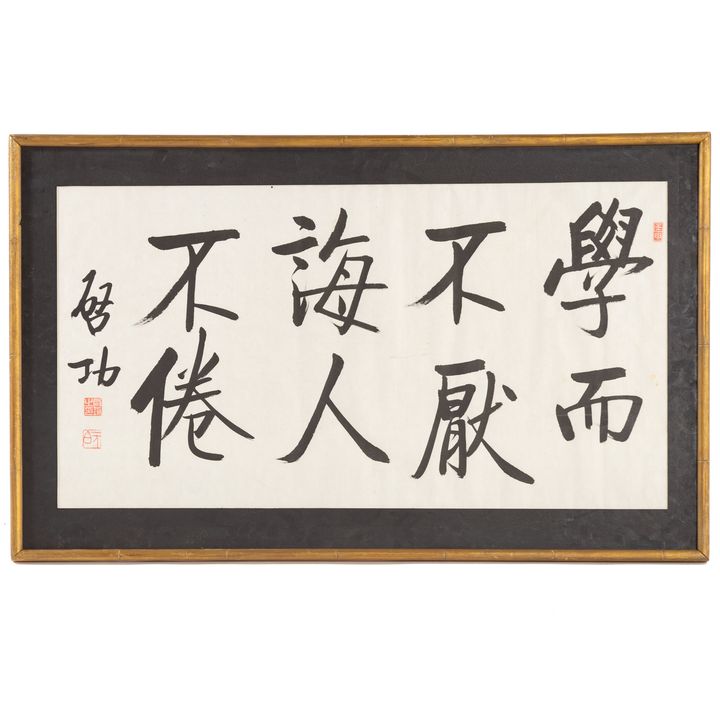 學而
不厭
誨人
不倦
啓功